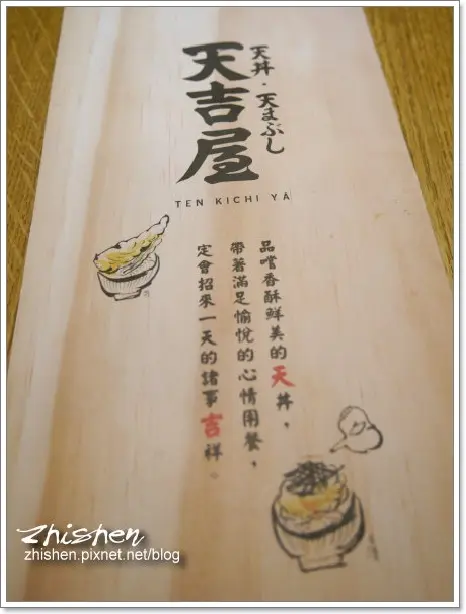 天丼・天まぶし
天吉屋
TEN KICHI YA
品嚐香酥鮮美的天丼，
帶著滿足愉悅的心情用餐，
定會招來一天的諸事吉祥。
Zhishen
zhishen.pixnet.net/blog